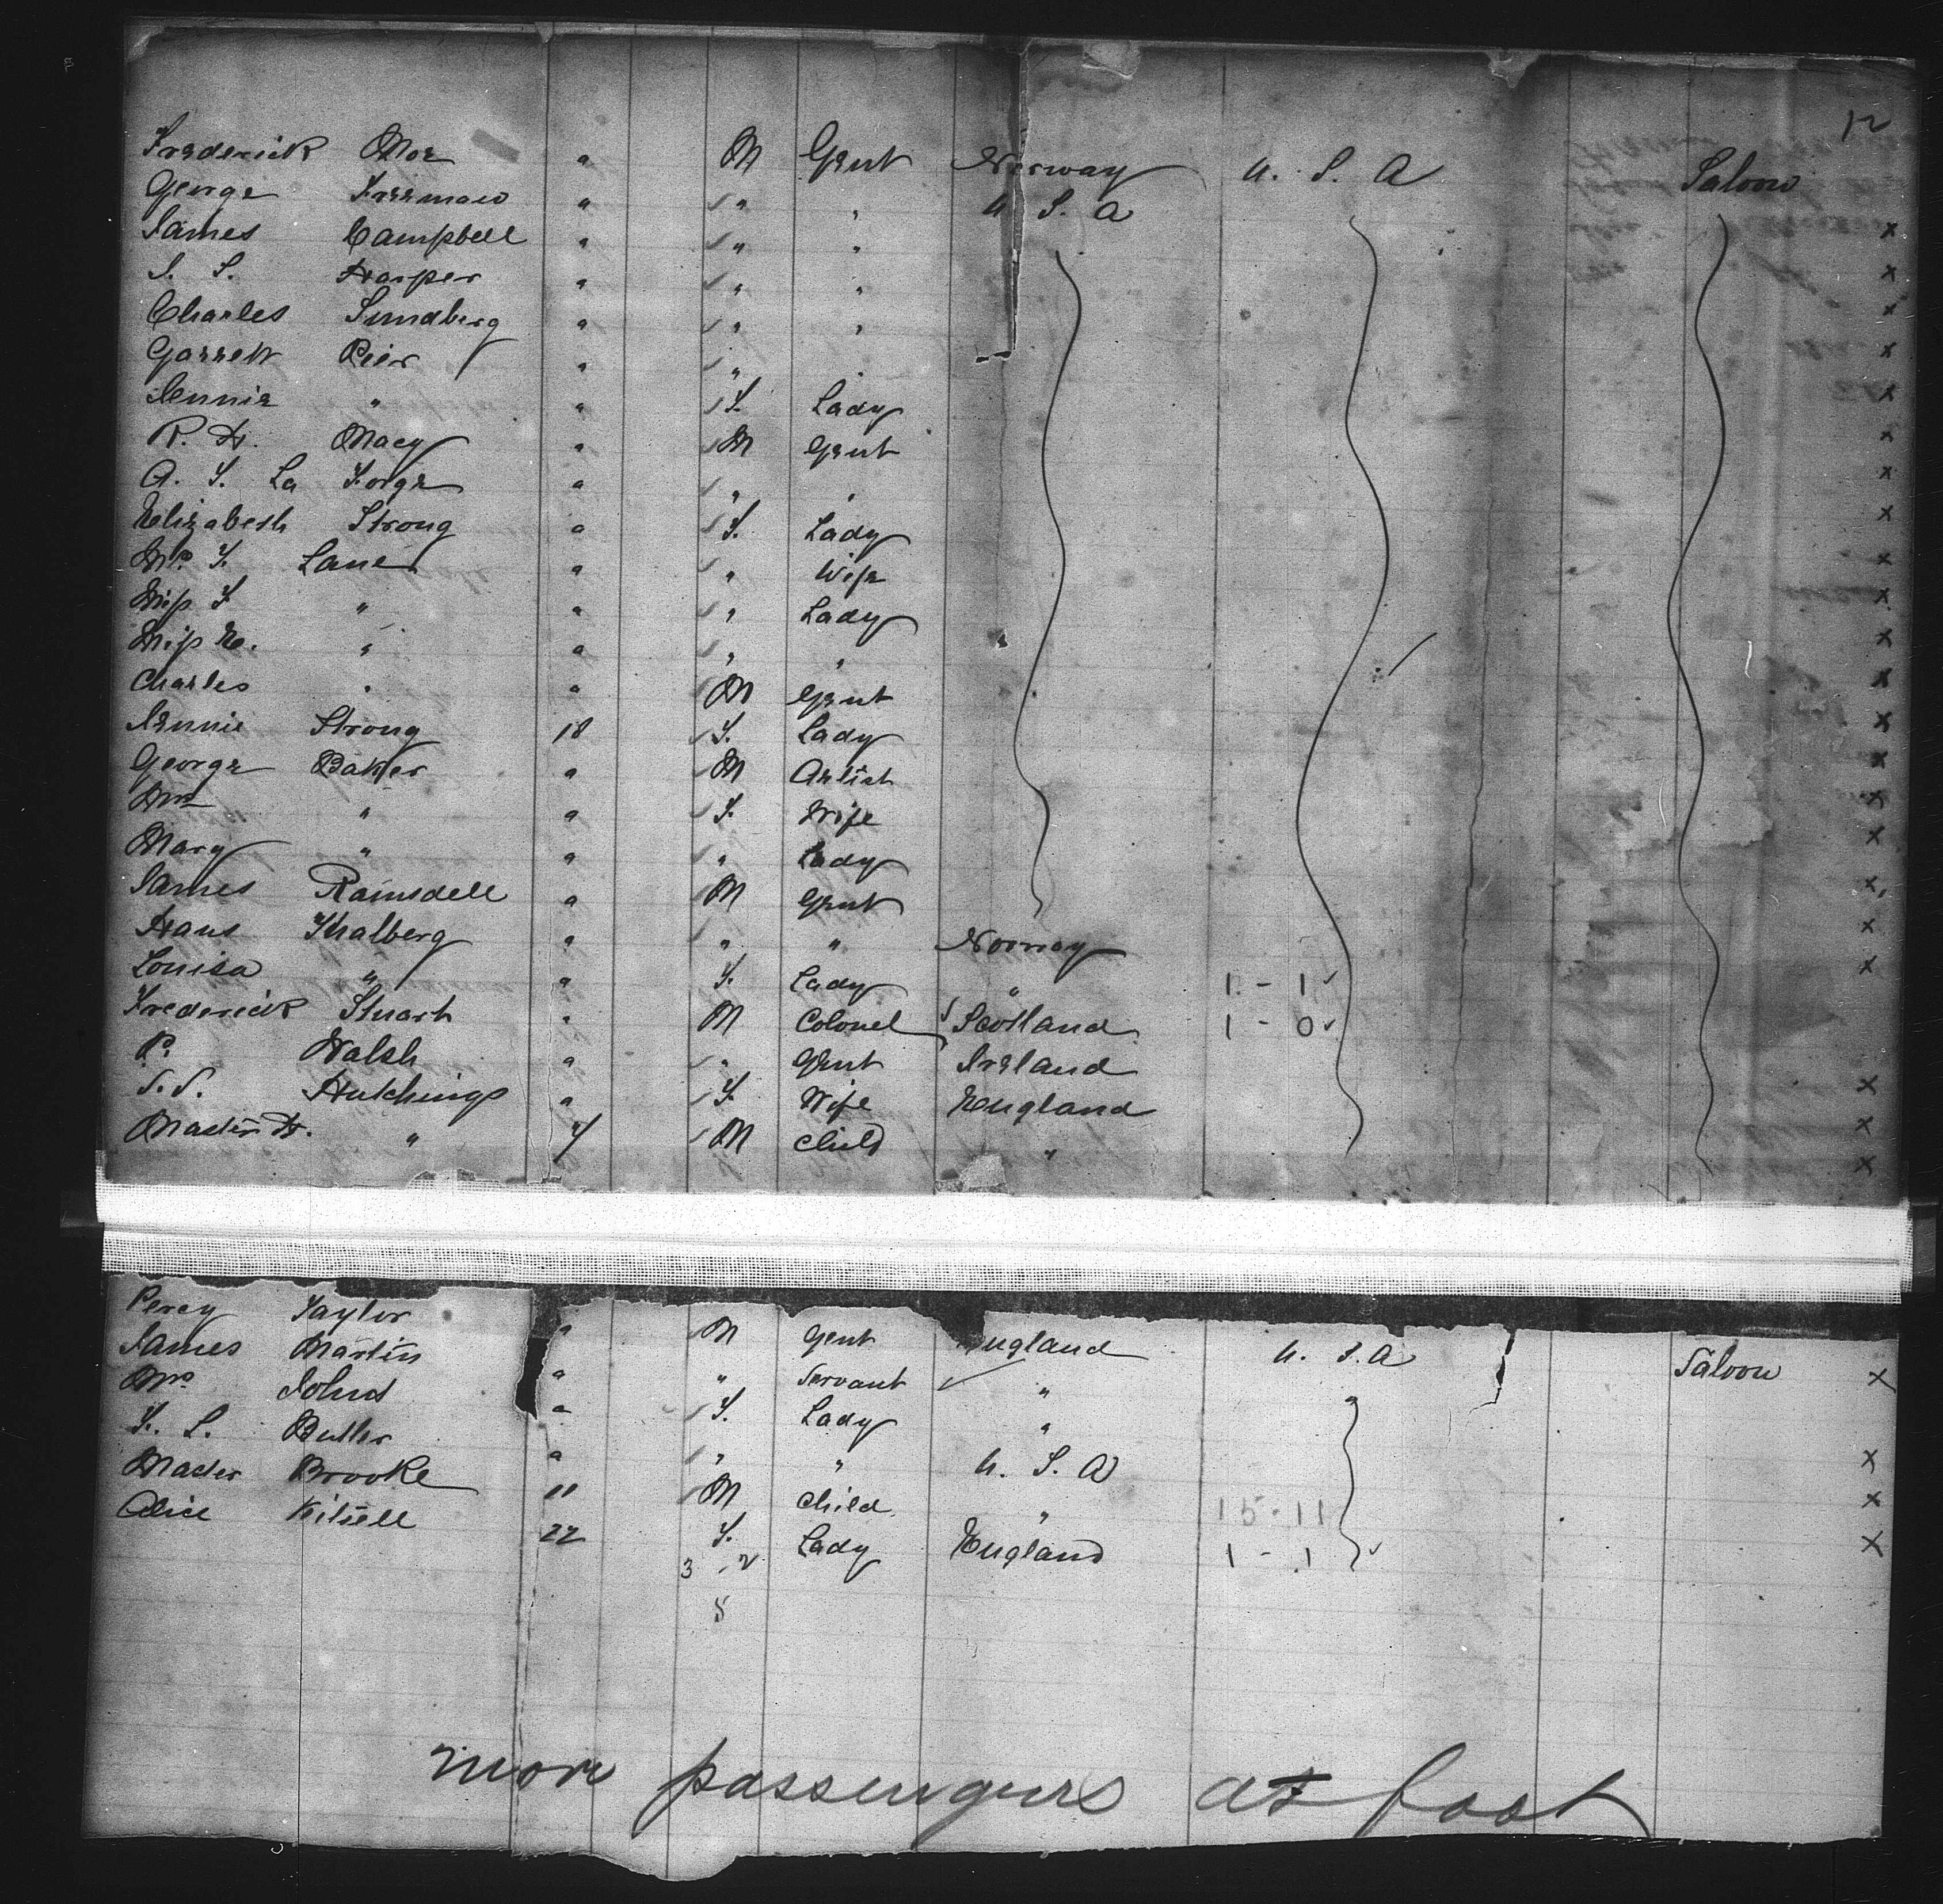 12
Frederick Moe a M Gent Norway U. S. A Saloon
George Freeman a " " U S. A
James Campbell a " "
J. S. Harper a " "
Charles Sundberg a " "
Garrett Pier a " "
Jennie " a F. Lady
R. H. Macy a M Gent
A. F. La Forge a " "
Elizabeth Strong a F. Lady
Mrs F. Lane a " Wife
Miss F " a " Lady
Miss E. " a " "
Charles " a M Gent
Jennie Strong 18 F. Lady
George Baker a M Artist
Mrs " a F. Wife
Mary " a " Lady
James Ramsdell a M Gent
Hans Thalberg a " " Norway
Louisa " a F. Lady " 1 - 1
Frederick Stuart " M Colonel Scotland 1 - 0
P. Walsh a " Gent Ireland
S. S. Hutchings a F. Wife England
Master H. " 4 M Child "
Percy Taylor a M Gent England U. S. A Saloon
James Martin a " Servant "
Mrs Johns a F. Lady "
F. S. Butler a " " U. S. A
Master Brooke 11 M Child "
Alice Kitsell 22 F. Lady England 1 - 1
3 2
5
more passengers at foot